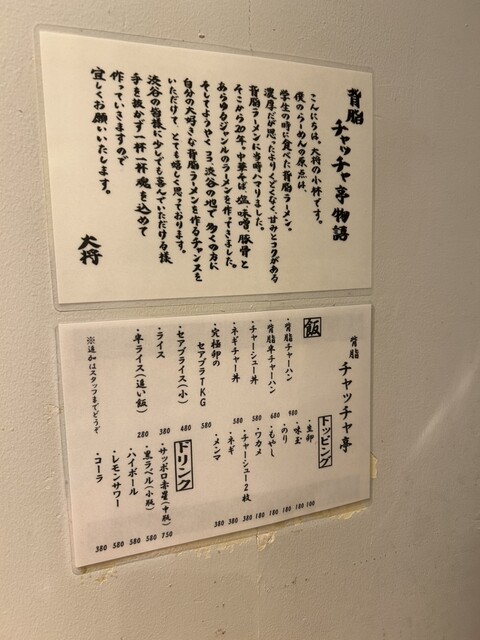 背脂 チャッチャ亭物語
こんにちは、大将の小林です。
僕のらーめんの原点は、
学生の時に食べた背脂ラーメン。
濃厚だが思ったよりくどくなく、甘みとコクがある
背脂ラーメンに当時ハマりました。
そこから20年。中華そば、塩、味噌、豚骨と
あらゆるジャンルのラーメンを作ってきました。
そしてようやくココ、渋谷の地で多くの方に
自分の大好きな背脂ラーメンを作るチャンスを
いただけて、とても嬉しく思っております。
渋谷の皆様に少しでも喜んでいただける様
手を抜かず一杯一杯魂を込めて
作っていきますので
宜しくお願いいたします。
大将
背脂 チャッチャ亭
飯
・背脂チャーハン 980
・背脂半チャーハン 680
・チャーシュー丼 580
・ネギチャー丼 580
・究極卵の
セアブラTKG 580
・セアブライス(小) 480
・ライス 380
・半ライス(追い飯) 280
※追加はスタッフまでどうぞ
トッピング
・生卵 100
・味玉 180
・のり 180
・もやし 180
・ワカメ 180
・チャーシュー2枚 380
・ネギ 380
・メンマ 380
ドリンク
・サッポロ赤星(中瓶) 750
・黒ラベル(小瓶) 580
・ハイボール 580
・レモンサワー 580
・コーラ 380